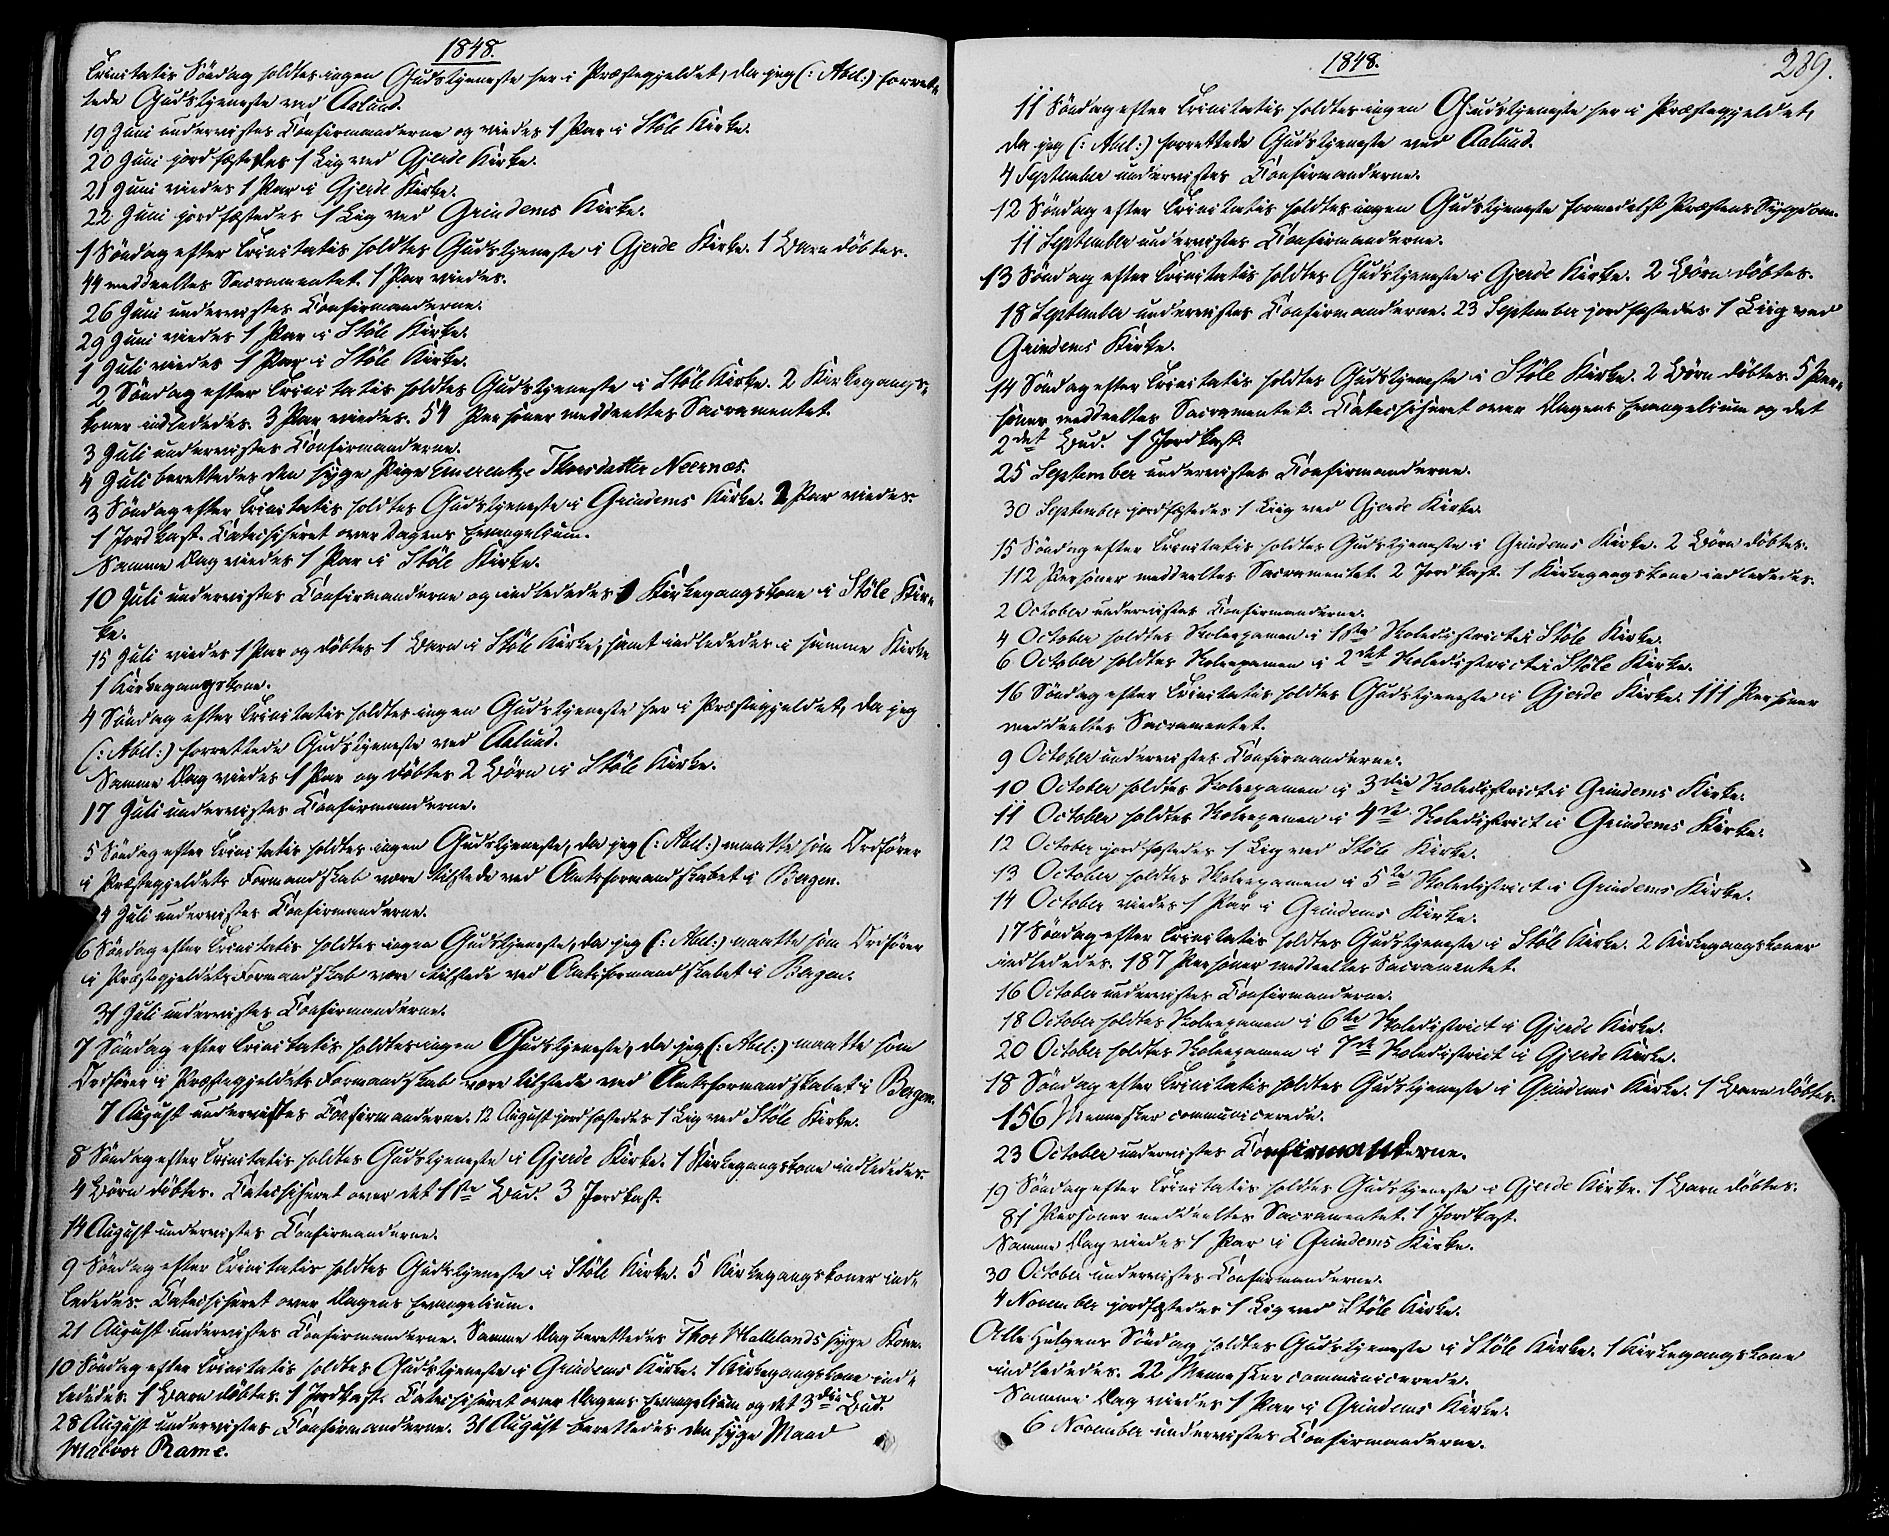 1848.
Trinitatis Söndag holdtes ingen Gudstjeneste her i Præstegjeldet, da jeg (: Abel:) forret-
tede Gudstjeneste ved Aalund.
19 Juni undervistes Confirmanderne og viedes 1 Par i Stöle Kirke.
20 Juni jordfæstedes 1 Lig ved Gjerde Kirke.
21 Juni viedes 1 Par i Gjerde Kirke.
22 Juni jordfæstedes 1 Lig ved Grindems Kirke.
1 Söndag efter Trinitatis holdtes Gudstjeneste i Gjerde Kirke. 1 Barn döbtes.
44 meddeeltes Sacramentet. 1 Par viedes.
26 Juni undervistes Confirmanderne.
29 Juni viedes 1 Par i Stöle Kirke.
1 Juli viedes 1 Par i Stöle Kirke.
2 Söndag efter Trinitatis holdtes Gudstjeneste i Stöle Kirke. 2 Kirkegangs-
koner indlededes. 3 Par viedes. 54 Personer meddeeltes Sacramentet.
3 Juli undervistes Confirmanderne.
4 Juli berettedes den syge Pige Emerentze Thorsdatter Neernæs.
3 Söndag efter Trinitatis holdtes Gudstjeneste i Grindems Kirke. 2 Par viedes.
1 Jordkast. Catechiseret over Dagens Evangelium.
Samme Dag viedes 1 Par i Stöle Kirke.
10 Juli undervistes Confirmanderne og indlededes 1 Kirkegangskone i Stöle Kir-
ke.
15 Juli viedes 1 Par og döbtes 1 Barn i Stöle Kirke, samt indlededes i samme Kirke
1 Kirkegangskone.
4 Söndag efter Trinitatis holdtes ingen Gudstjeneste her i Præstegjeldet, da jeg
(: Abel:) forrettede Gudstjeneste ved Aalund.
Samme Dag viedes 1 Par og döbtes 2 Börn i Stöle Kirke.
17 Juli undervistes Confirmanderne.
5 Söndag efter Trinitatis holdtes ingen Gudstjeneste, da jeg (: Abel:) maatte som Ordförer
i Præstegjeldets Formandskab være tilstede ved Amtsformandskabet i Bergen.
4 Juli undervistes Confirmanderne.
6 Söndag efter Trinitatis holdtes ingen Gudstjeneste, da jeg (: Abel:) maatte som Ordförer
i Præstegjeldets Formandskab være tilstede ved Amtsformandskabet i Bergen.
31 Juli undervistes Confirmanderne.
7 Söndag efter Trinitatis holdtes ingen Gudstjeneste, da jeg (: Abel:) maatte som
Ordförer i Præstegjeldets Formandskab være tilstede ved Amtsformandskabet i Bergen.
7 August undervistes Confirmanderne. 12 August jordfæstedes 1 Lig ved Stöle Kirke.
8 Söndag efter Trinitatis holdtes Gudstjeneste i Gjerde Kirke. 1 Kirkegangskone indlededes.
4 Börn döbtes. Catechiseret over det 1ste Bud. 3 Jordkast.
14 August undervistes Confirmanderne.
9 Söndag efter Trinitatis holdtes Gudstjeneste i Stöle Kirke. 5 Kirkegangskoner ind-
lededes. Catechiseret over Dagens Evangelium.
21 August undervistes Confirmanderne. Samme Dag berettedes Thor Hallelands syge Kone.
10 Söndag efter Trinitatis holdtes Gudstjeneste i Grindems Kirke. 1 Kirkegangskone ind-
lededes. 1 Barn döbtes. 1 Jordkast. Catechiseret over Dagens Evangelium og det 3die Bud.
28 August undervistes Confirmanderne. 31 August berettedes den syge Mand
Malvor Rame.
1848.
289.
11 Söndag efter Trinitatis holdtes ingen Gudstjeneste her i Præstegjeldet,
da jeg (: Abel:) forrettede Gudstjeneste ved Aalund.
4 September undervistes Confirmanderne.
12 Söndag efter Trinitatis holdtes ingen Gudstjeneste formedelst Præstens Sygdom.
11 September undervistes Confirmanderne.
13 Söndag efter Trinitatis holdtes Gudstjeneste i Gjerde Kirke. 2 Börn döbtes.
18 September undervistes Confirmanderne. 23 September jordfæstedes 1 Liig ved
Grindems Kirke.
14 Söndag efter Trinitatis holdtes Gudstjeneste i Stöle Kirke. 2 Börn döbtes. 5 Per-
soner meddeeltes Sacramentet. Catechiseret over Dagens Evangelium og det
2det Bud. 1 Jordkast.
25 September undervistes Confirmanderne.
30 September jordfæstedes 1 Liig ved Gjerde Kirke.
15 Söndag efter Trinitatis holdtes Gudstjeneste i Grindems Kirke. 2 Börn döbtes.
112 Personer meddeeltes Sacramentet. 2 Jordkast. 1 Kirkegangskone indlededes.
2 October undervistes Confirmanderne.
4 October holdtes Skoleexamen i 1ste Skoledistrict i Stöle Kirke.
6 October holdtes Skoleexamen i 2det Skoledistrict i Stöle Kirke.
16 Söndag efter Trinitatis holdtes Gudstjeneste i Gjerde Kirke. 111 Personer
meddeeltes Sacramentet.
9 October undervistes Confirmanderne.
10 October holdtes Skoleexamen i 3die Skoledistrict i Grindems Kirke.
11 October holdtes Skoleexamen i 4de Skoledistrict i Grindems Kirke.
12 October jordfæstedes 1 Lig ved Stöle Kirke.
13 October holdtes Skoleexamen i 5te Skoledistrict i Grindems Kirke.
14 October viedes 1 Par i Grindems Kirke.
17 Söndag efter Trinitatis holdtes Gudstjeneste i Stöle Kirke. 2 Kirkegangskoner
indlededes. 187 Personer meddeeltes Sacramentet.
16 October undervistes Confirmanderne.
18 October holdtes Skoleexamen i 6te Skoledistrict i Gjerde Kirke.
20 October holdtes Skoleexamen i 7de Skoledistrict i Gjerde Kirke.
18 Söndag efter Trinitatis holdtes Gudstjeneste i Grindems Kirke. 1 Barn döbtes.
156 Mennesker communicerede.
23 October undervistes Confirmanderne.
19 Söndag efter Trinitatis holdtes Gudstjeneste i Gjerde Kirke. 1 Barn döbtes.
81 Personer meddeeltes Sacramentet. 1 Jordkast.
Samme Dag viedes 1 Par i Grindems Kirke.
30 October undervistes Confirmanderne.
4 November jordfæstedes 1 Lig ved Stöle Kirke.
Alle Helgens Söndag holdtes Gudstjeneste i Stöle Kirke. 1 Kirkegangskone
indlededes. 22 Mennesker communicerede.
Samme Dag viedes 1 Par i Grindems Kirke.
6 November undervistes Confirmanderne.